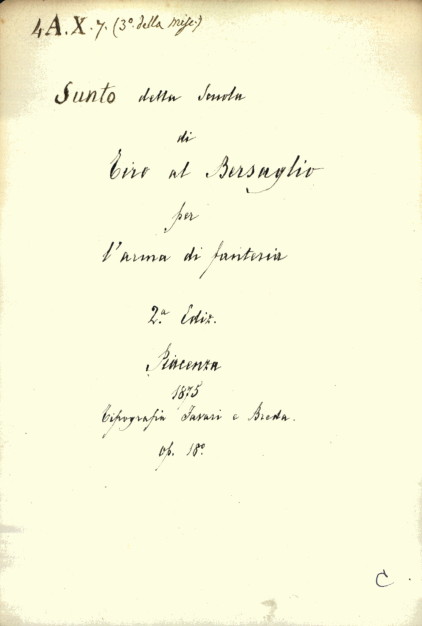 4A.X.7. (3º. della misc.)
Sunto della Scuola
di
Tiro al Bersaglio
per
l'arma di fanteria
2.a Ediz.
Piacenza
1875
Tipografia Tavari e Breda.
op. 18º
C.